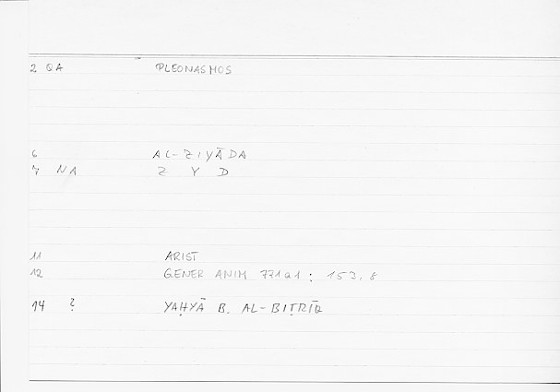 2 QA PLEONASMOS
6 AL-ZIYĀDA
7 NA Z Y D
11 ARIST
12 GENER ANIM 771a1 : 152.8
14 ? YAḤYĀ B. AL-BIṬRĪQ